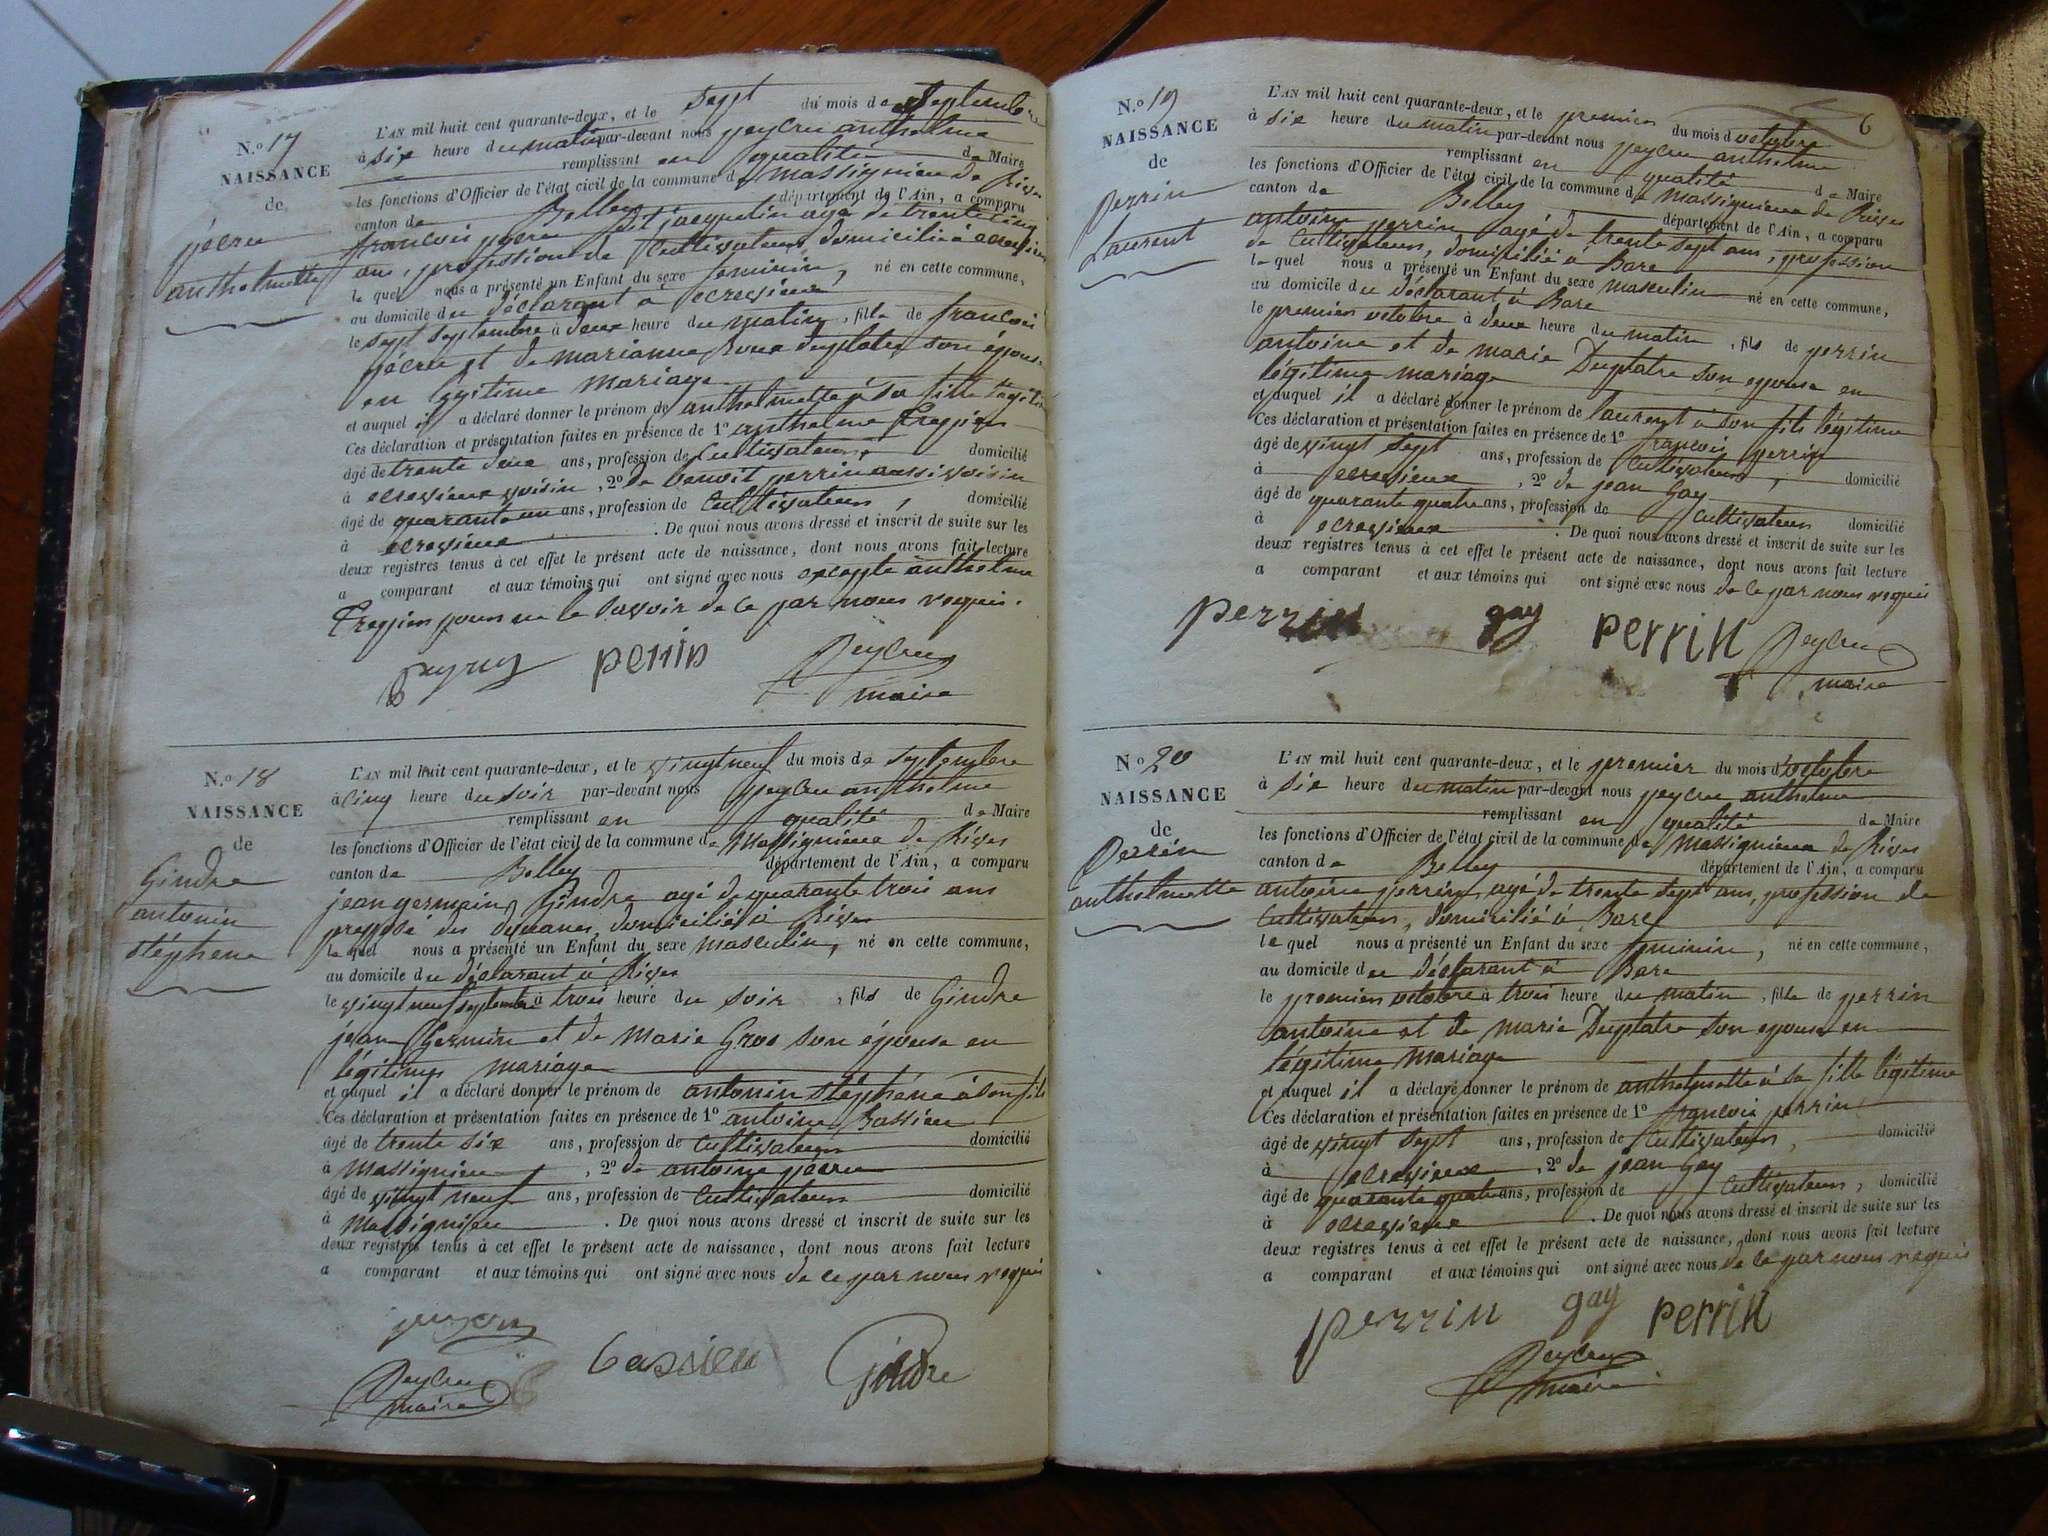 N.o 17
NAISSANCE
de
pécru
anthelmette
L'AN mil huit cent quarante-deux, et le sept du mois de septembre
à six heure du matin par-devant nous peycru anthelme
remplissant en qualité de Maire
les fonctions d'Officier de l'état civil de la commune de massignieu de Rives
canton de Belley département de l'Ain, a comparu
francois pécru dit jacquelin agé de trente cinq
ans, profession de Cultivateur, domicilié à ecrevieu
le quel nous a présenté un Enfant du sexe feminin, né en cette commune,
au domicile du déclarant a ecrevieux
le sept septembre à deux heure du matin, fille de francois
pécru et de marianne Roux duplatre son épouse
en légitime mariage
et auquel il a déclaré donner le prénom de anthelmette à sa fille
Ces déclaration et présentation faites en présence de 1º anthelme
âgé de trente deux ans, profession de Cultivateur, domicilié
à ecrevieux voisin, 2º de benoit perrin aussi voisin
âgé de quarante un ans, profession de Cultivateur, domicilié
à ecrevieux. De quoi nous avons dressé et inscrit de suite sur les
deux registres tenus à cet effet le présent acte de naissance, dont nous avons fait lecture
a comparant et aux témoins qui ont signé avec nous excepte anthelme
pour ne le savoir de ce par nous requis.
perrin Peycru
maire
N.o 18
NAISSANCE
de
Gindre
antonin
stéphene
L'AN mil huit cent quarante-deux, et le vingt neuf du mois de septembre
à cinq heure du soir par-devant nous peycru anthelme
remplissant en qualité de Maire
les fonctions d'Officier de l'état civil de la commune de Massignieux de Rives
canton de Belley département de l'Ain, a comparu
jean germain Gindre agé de quarante trois ans
preposé des douanes, domicilié à Rives
le quel nous a présenté un Enfant du sexe masculin, né en cette commune,
au domicile du déclarant à Rives
le vingt neuf septembre à trois heure du soir, fils de Gindre
jean Germain et de Marie Gros son épouse en
légitime mariage
et auquel il a déclaré donner le prénom de antonin stéphene à son fils
Ces déclaration et présentation faites en présence de 1º antoine Bassieu
âgé de trente six ans, profession de Cultivateur domicilié
à Massignieu, 2º de antoine pécru
âgé de vingt neuf ans, profession de Cultivateur domicilié
à Massignieu. De quoi nous avons dressé et inscrit de suite sur les
deux registres tenus à cet effet le présent acte de naissance, dont nous avons fait lecture
a comparant et aux témoins qui ont signé avec nous de ce par nous requis
bassieu Gindre
Peycru
maire
6
N.o 19
NAISSANCE
de
Perrin
Laurent
L'AN mil huit cent quarante-deux, et le premier du mois d'octobre
à six heure du matin par-devant nous peycru anthelme
remplissant en qualité de Maire
les fonctions d'Officier de l'état civil de la commune de Massignieux de Rives
canton de Belley département de l'Ain, a comparu
antoine perrin agé de trente sept ans, profession
de Cultivateur, domicilié à Bare
le quel nous a présenté un Enfant du sexe masculin né en cette commune,
au domicile du déclarant à Bare
le premier octobre à deux heure du matin, fils de perrin
antoine et de marie Duplatre son epouse en
légitime mariage
et auquel il a déclaré donner le prénom de laurent à son fils légitime
Ces déclaration et présentation faites en présence de 1º francois perrin
âgé de vingt sept ans, profession de Cultivateur, domicilié
à ecrevieux, 2º de jean Gay
âgé de quarante quatre ans, profession de Cultivateur domicilié
à ecrevieux. De quoi nous avons dressé et inscrit de suite sur les
deux registres tenus à cet effet le présent acte de naissance, dont nous avons fait lecture
a comparant et aux témoins qui ont signé avec nous de ce par nous requis
perrin gay perrin Peycru
maire
No 20
NAISSANCE
de
Perrin
anthelmette
L'AN mil huit cent quarante-deux, et le premier du mois d'octobre
à six heure du matin par-devant nous peycru anthelme
remplissant en qualité de Maire
les fonctions d'Officier de l'état civil de la commune de Massignieux de Rives
canton de Belley département de l'Ain, a comparu
antoine perrin, agé de trente sept ans, profession de
Cultivateur, domicilié à Bare
le quel nous a présenté un Enfant du sexe feminin, né en cette commune,
au domicile du déclarant à Bare
le premier octobre à trois heure du matin, fille de perrin
antoine et de marie Duplatre son epouse en
légitime mariage
et auquel il a déclaré donner le prénom de anthelmette à sa fille légitime
Ces déclaration et présentation faites en présence de 1º francois perrin
âgé de vingt sept ans, profession de Cultivateur, domicilié
à ecrevieux, 2º de jean Gay
âgé de quarante quatre ans, profession de Cultivateur, domicilié
à ecrevieux. De quoi nous avons dressé et inscrit de suite sur les
deux registres tenus à cet effet le présent acte de naissance, dont nous avons fait lecture
a comparant et aux témoins qui ont signé avec nous de ce par nous requis
perrin gay perrin
Peycru
maire